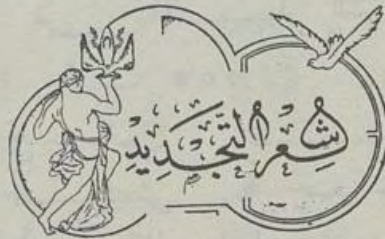 شِعْرُ التَّجْدِيدِ